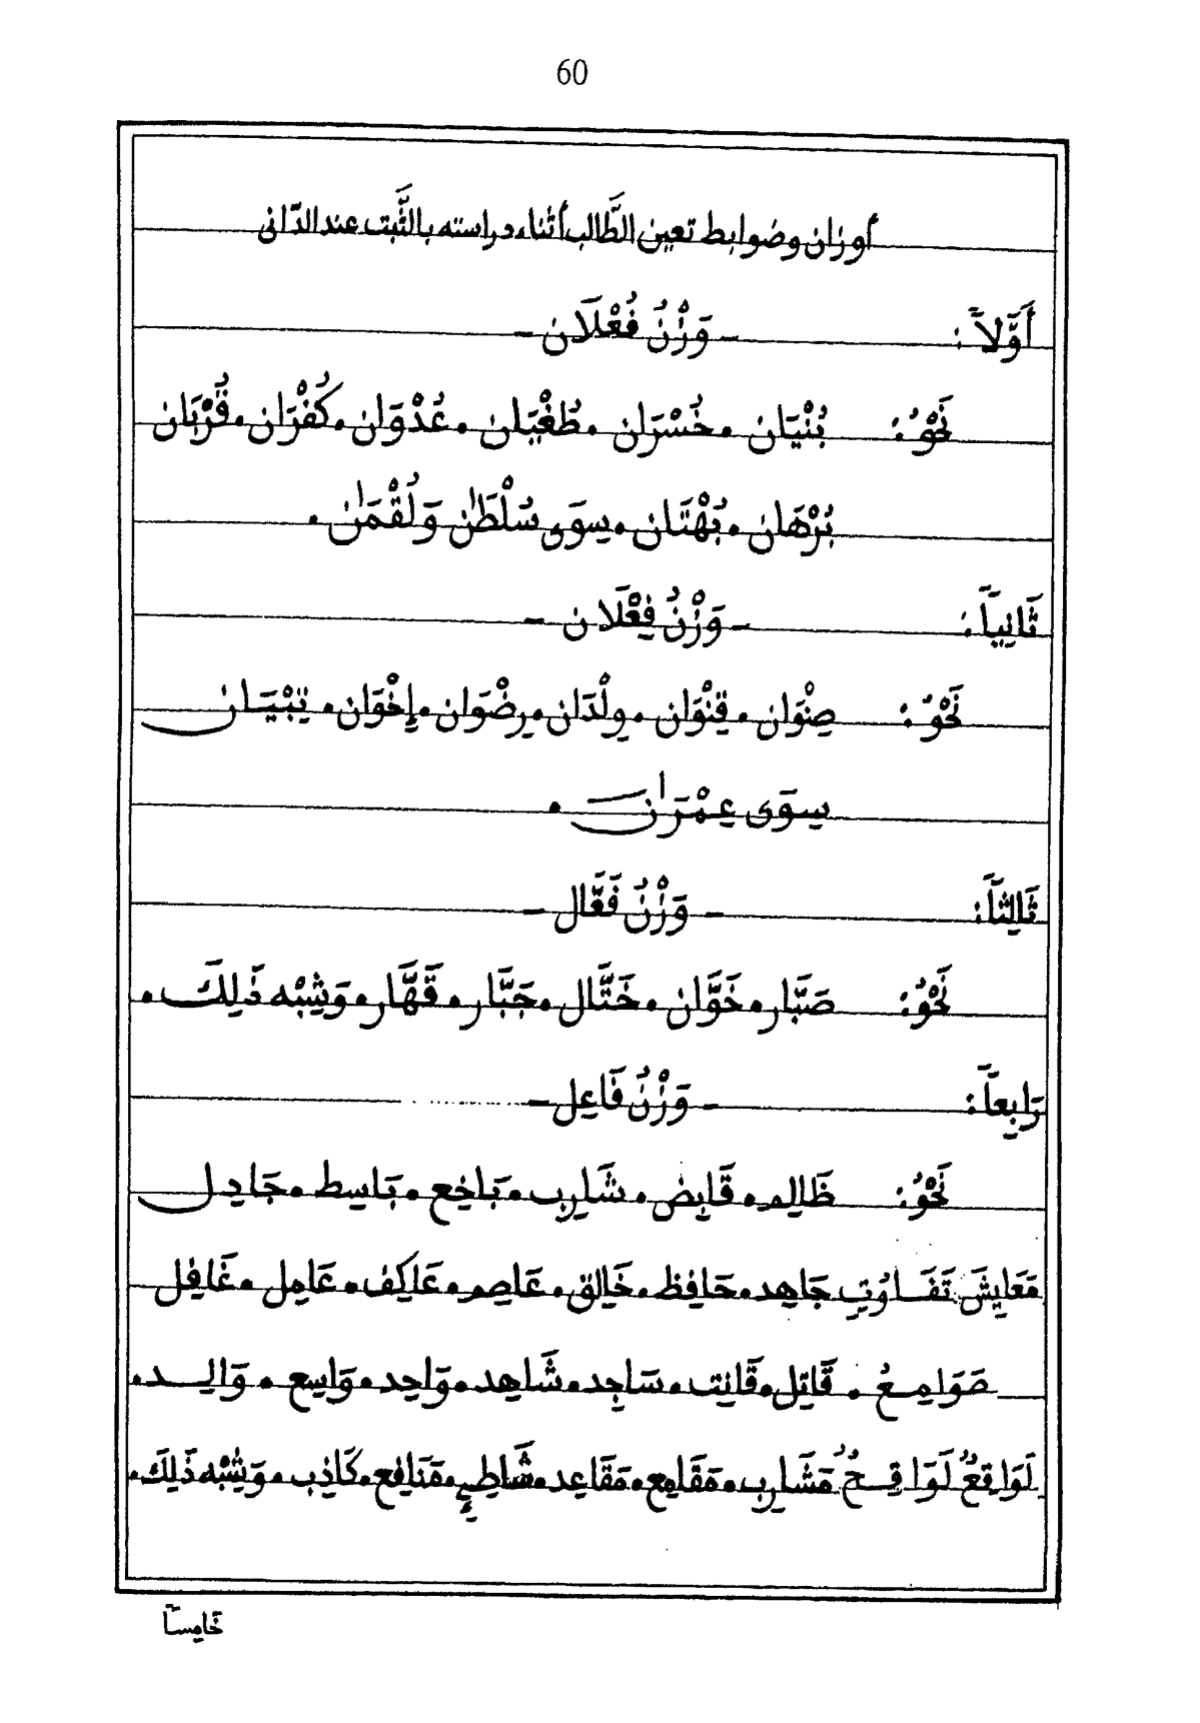 60
أوزان وضوابط تعين الطَّالب أثناء دراسته بالثَّبت عند الدّانى
أَوَّلاً : - وَزْنُ فُعْلَان -
نَحْوُ : بُنْيَان . خُسْرَان . طُغْيَان . عُدْوَان . كُفْرَان . قُرْبَان
بُرْهَان . بُهْتَان . سِوَى سُلْطَٰن وَلُقْمَٰن .
ثَانِياً : - وَزْنُ فِعْلَان -
نَحْوُ : صِنْوَان . قِنْوَان . وِلْدَان . رِضْوَان . إِخْوَان . تِبْيَان
سِوَى عِمْرَٰن .
ثَالِثاً : - وَزْنُ فَعَّال -
نَحْوُ : صَبَّار . خَوَّان . خَتَّال . جَبَّار . قَهَّار . وَشِبْه ذَلِكَ .
رَابِعاً : - وَزْنُ فَاعِل -
نَحْوُ : ظَالِم . قَابِض . شَارِب . بَاخِع . بَاسِط . جَادِل
مَعَايِشَ تَفَاوُتِ جَاهِد . حَافِظ . خَالِق . عَاصِم . عَاكِف . عَامِل . غَافِل
صَوَامِعُ . قَاتِل . قَانِت . سَاجِد . شَاهِد . وَاحِد . وَاسِع . وَالِد .
لَوَاقِعُ لَوَاقِحُ مَشَارِب . مَقَامِع . مَقَاعِد . شَاطِىِٕ . مَنَافِع . كَاذِب . وَشِبْه ذَلِكَ .
خَامِساً